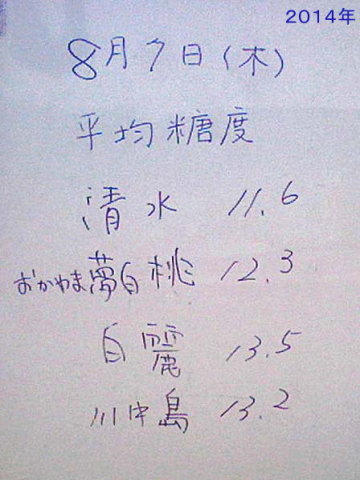 2014年
8月7日(木)
平均糖度
清水 11.6
おかやま夢白桃 12.3
白麗 13.5
川中島 13.2